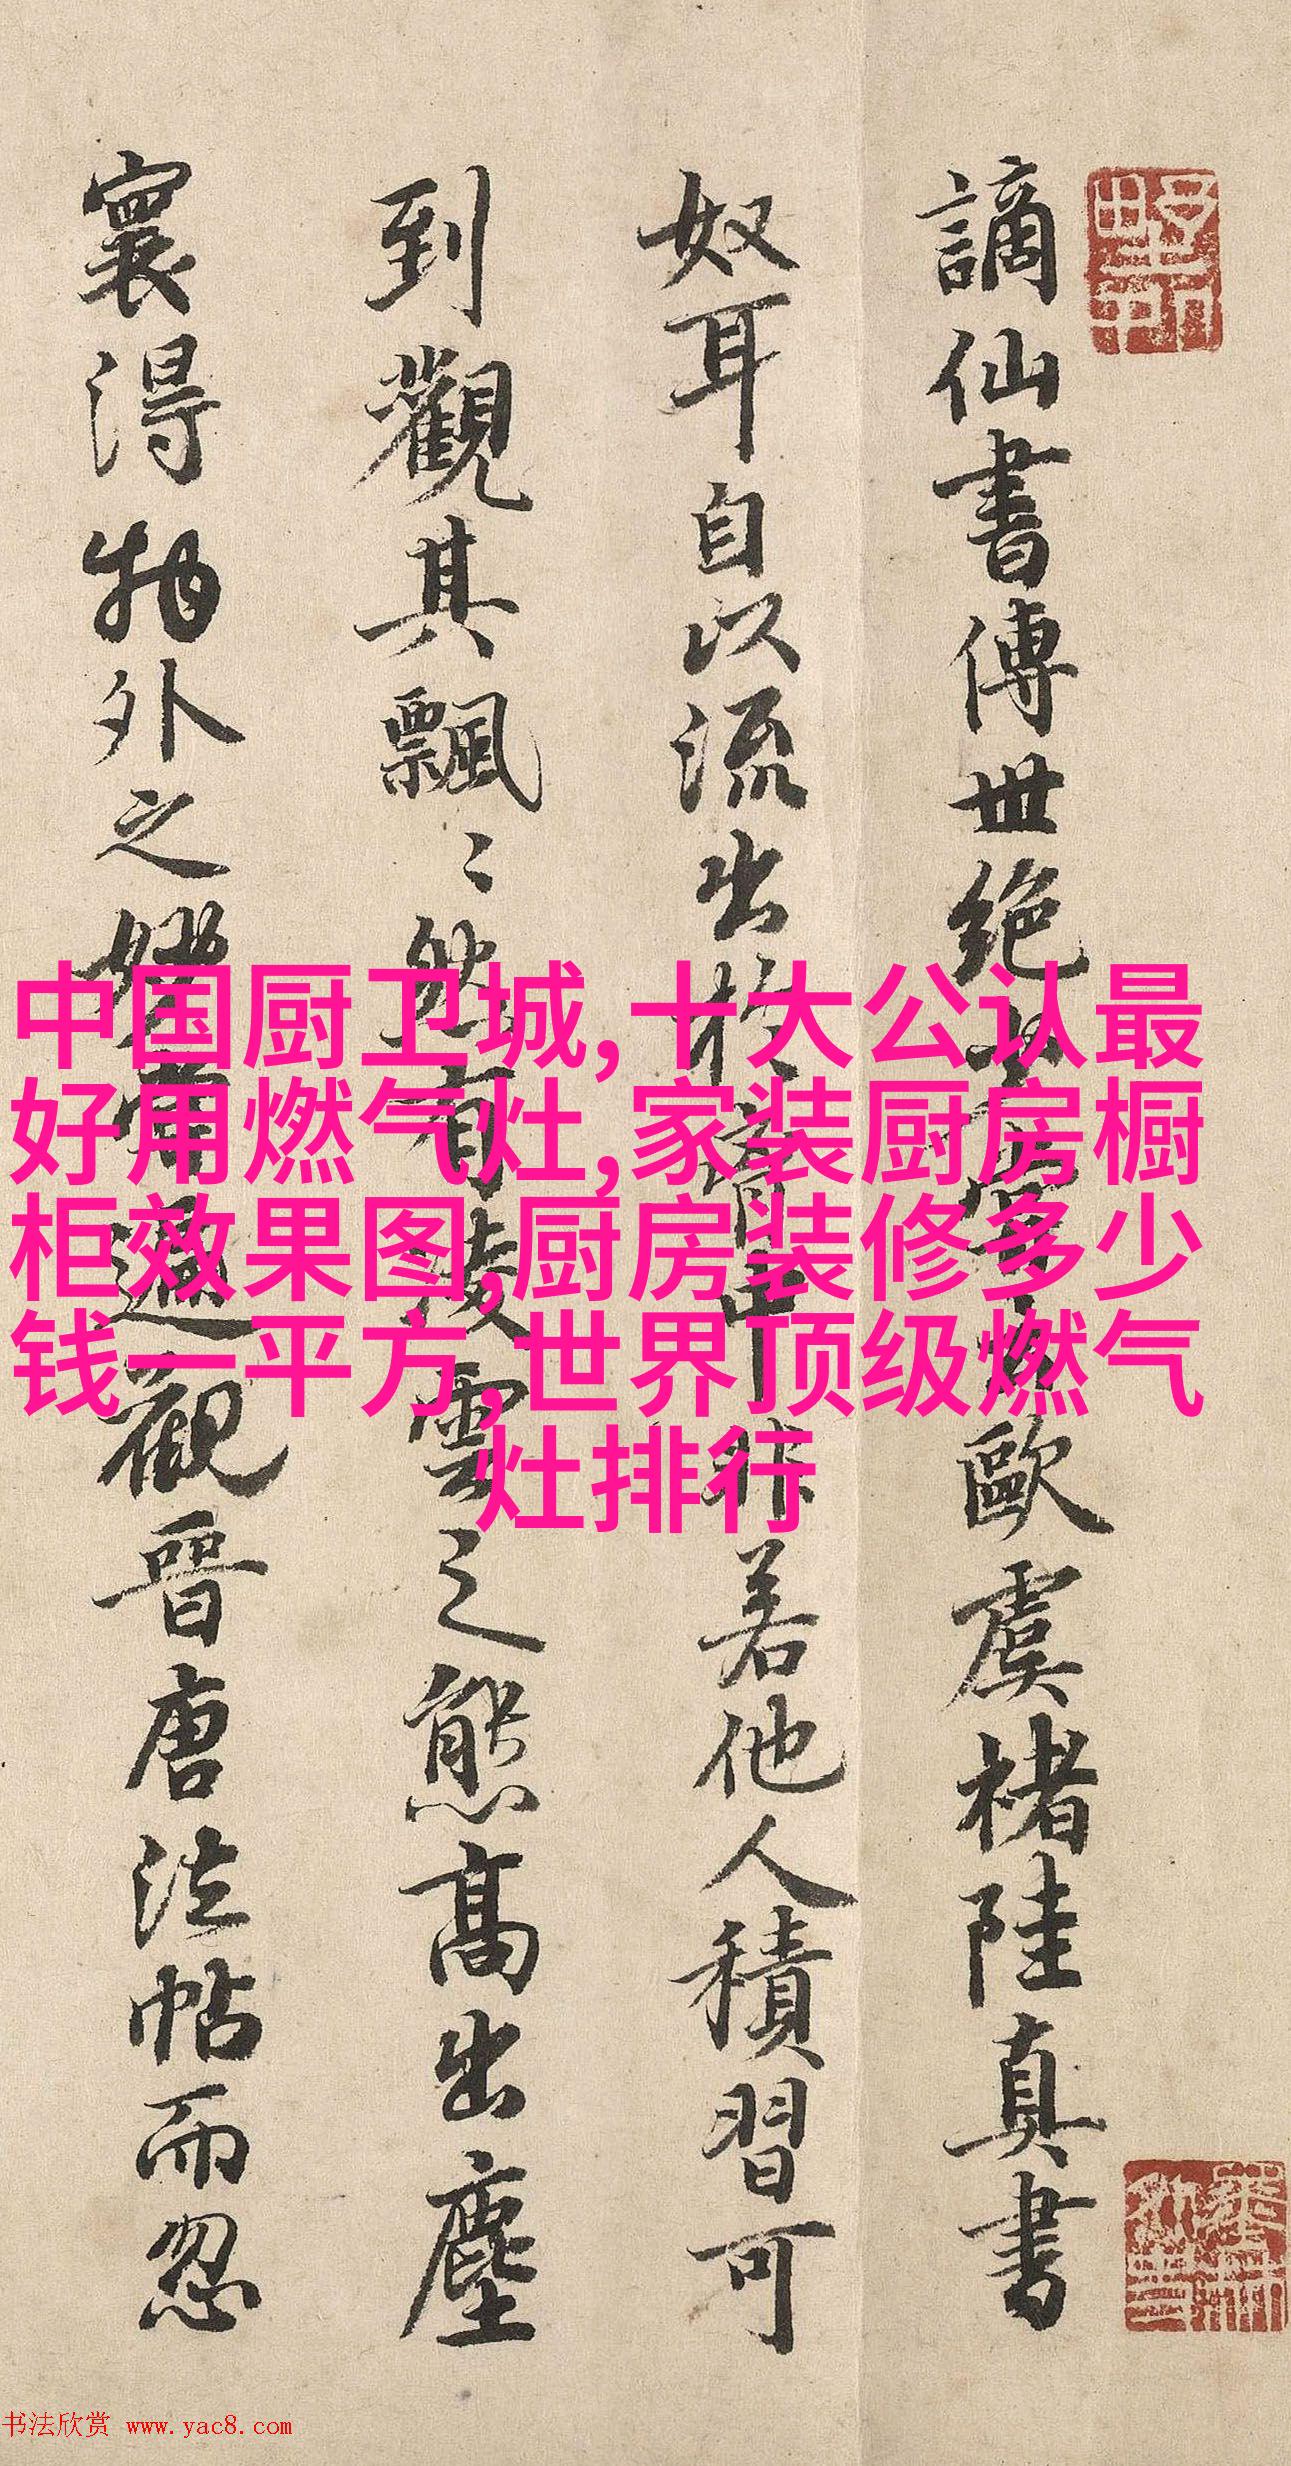 謫仙書傳世絶少嘗觀歐虞褚陸真書
奴耳自以流出於胷中非若他人積習可
到觀其飄〻然有凌雲之態高出塵
寰得物外之妙嘗遍觀晉唐法帖而忽
中国厨卫城,十大公认最
好用燃气灶,家装厨房橱
柜效果图,厨房装修多少
钱一平方,世界顶级燃气
灶排行
书法欣赏 www.yac8.com